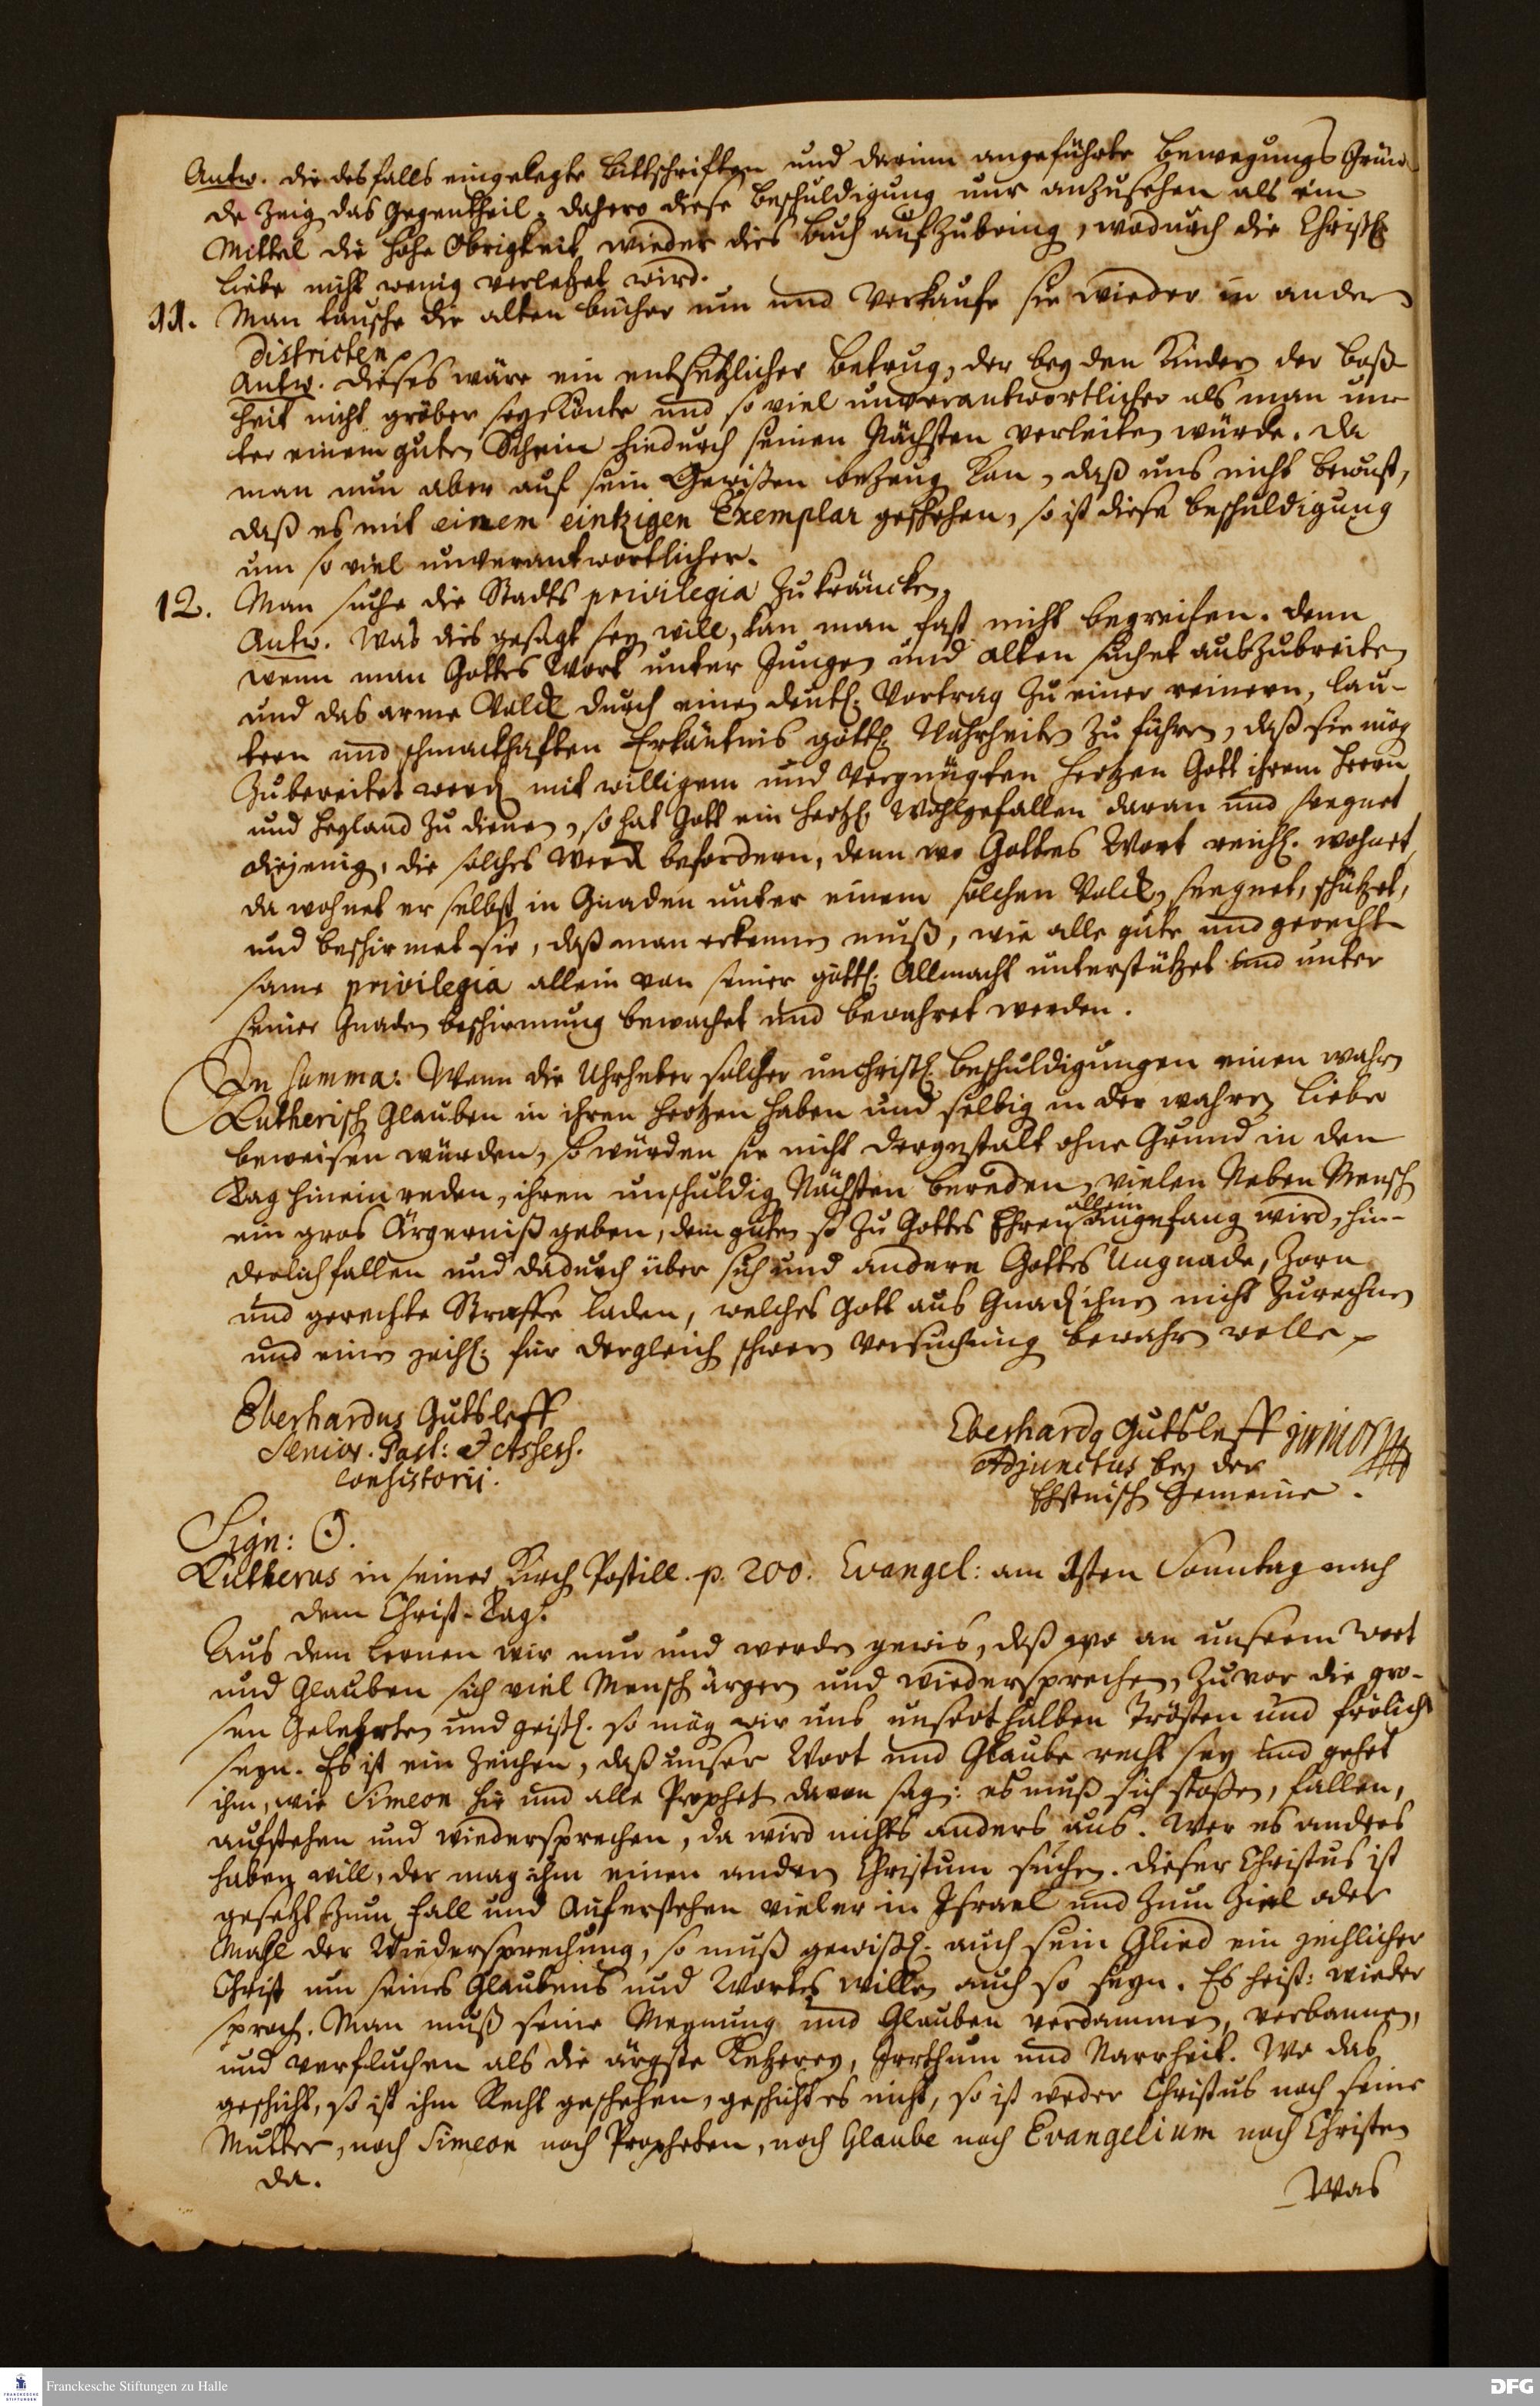 Antw. die desfalls eingelegte Bittschriften und darinn angeführte Bewegungs Grün
de zeig. das Gegentheil. dahero diese Beschuldigung nur anzusehen als ein
Mittel die hohe Obrigkeit wieder dies Buch aufzubring, wodurch die Christl.
Liebe nicht wenig verletzet wird.
11. Man tausche die alten bücher um und verkaufe sie wieder in andern
districten.
Antw. dieses wäre ein entsetzlicher Betrug, der bey den Kindern der boß
heit nicht gröber seyn könte und so viel unverantwortlicher als man un
ter einem guten Schein hiedurch seinen Nächsten verleiten würde. Da
man nun aber auf sein Gewißen bezeug. kan, daß uns nicht bewust,
daß es mit einem eintzigen Exemplar geschehen, so ist diese beschuldigung
um so viel unverantwortlicher.
12. Man suche die Stadts privilegia zu kräncken.
Antw. Was dis gesagt seyn will, kan man fast nicht begreifen. denn
wenn man Gottes Wort unter Jungen und alten suchet auszubreiten
und das arme Volck durch einen deutl. Vortrag zu einer reinern, lau-
tern und schmackhaften Erkäntnis göttl. Wahrheiten zu führen, daß sie mög.
zubereitet werd. mit willigem und vergnügten Hertzen Gott ihrem Herrn
und Heyland zu dienen, so hat Gott ein hertzl. Wohlgefallen daran und seegnet
diejenig. die solches Werck befordern, denn wo Gottes Wort reichl. wohnet,
da wohnet er selbst in Gnaden unter einem solchen Volck, seegnet, schützet,
und beschirmet sie, daß man erkennen muß, wie alle gute und gerecht
same privilegia allein von seiner göttl. Allmacht unterstützet und unter
seiner Gnaden beschirmung bewachet und bewahret werden.
In summa: Wenn die Uhrheber solcher unchristl. beschuldigungen einen wahren
Lutherisch. Glauben in ihren Hertzen haben und selbig. in der wahren Liebe
beweisen würden, so würden sie nicht dergestalt ohne Grund in den
Tag hinein reden, ihren unschuldig. Nächsten bereden, vielen Neben Mensch.
ein gros Ärgerniß geben, dem guten so zu Gottes Ehren allein angefang. wird, hin-
derlich fallen und dadurch über sich und andere Gottes Ungnade, Zorn
und gerechte Straffe laden, welches Gott aus Gnad. ihnen nicht zurechnen
und einen jeglich. für dergleich. schwere Versuchung bewahren wolle.
Eberhardus Gutsleff
Senior. Past: & Assess.
Consistorii.
Eberhardg Gutsleff junior
Adjunctus bey der
Ehstnisch. Gemeine.
Sign: ☉.
Lutherus in seiner Kirch. Postill. p. 200. Evangel: am 1sten Sonntag nach
dem Christ-Tag.
Aus dem lernen wir nun und werden gewis, daß wo an unserm Wort
und Glauben sich viel Mensch. ärgern und wiedersprechen, zuvor die gro-
sen Gelehrten und geistl. so mög. wir uns unserthalben trösten und frölich
seyn. Es ist ein Zeichen, daß unser Wort und Glaube recht sey und gehet
ihm, wie Simeon hie und alle Prophet. davon sag.: es muß sich stoßen, fallen,
aufstehen und wiedersprechen, da wird nichts anders aus. Wer es anders
haben will, der mag ihm einen andern Christum suchen. dieser Christus ist
gesetzt zum Fall und Auferstehen vieler in Israel und zum Ziel oder
Mahl der Wiedersprechung, so muß gewißl. auch sein Glied ein jechlicher
Christ um seines Glaubens und Wortes willen auch so seyn. Es heist: wieder
sproch. Man muß seine Meynung und Glauben verdammen, verbannen,
und verfluchen als die ärgste Ketzerey, Irrthum und Narrheit. Wo das
geschicht, so ist ihm Recht geschehen, geschicht es nicht, so ist weder Christus noch seine
Mutter, noch Simeon noch Propheten, noch Glaube noch Evangelium noch Christen
da.
Was
Franckesche Stiftungen zu Halle
DFG